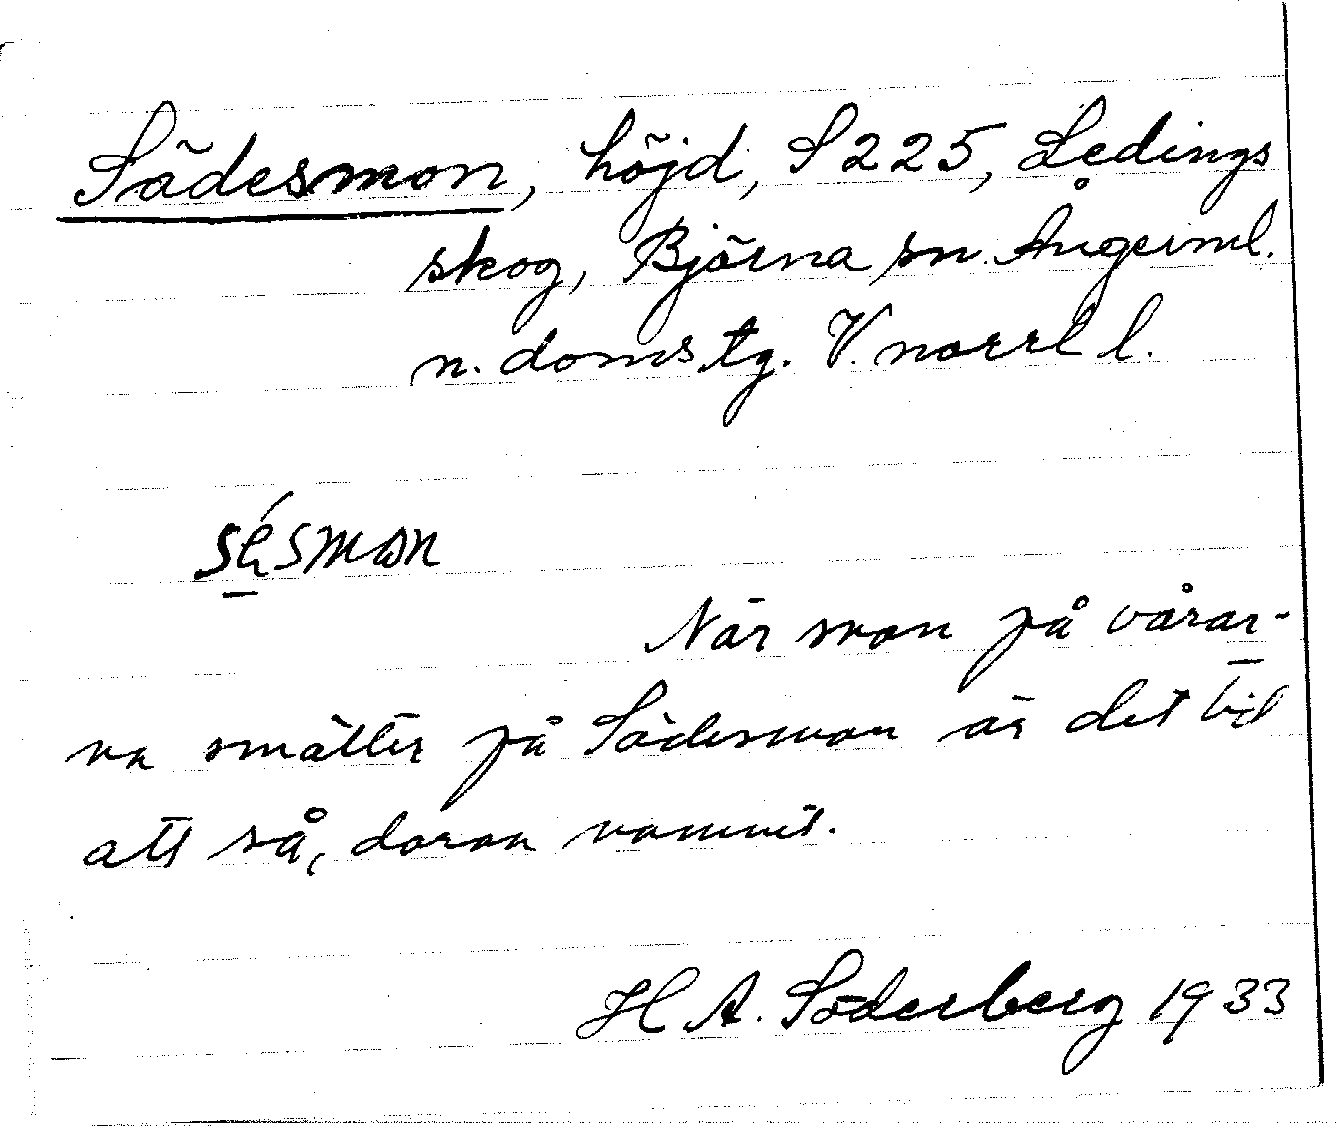 Sädesmon, höjd, S 225, Ledings
skog, Björna sn. Ångerml.
n. doms.tg. V. norrl l.
När man på vårar-
na smälter på Sädesmon är det tid
att så, daran namnet.
H A. Söderberg 1933